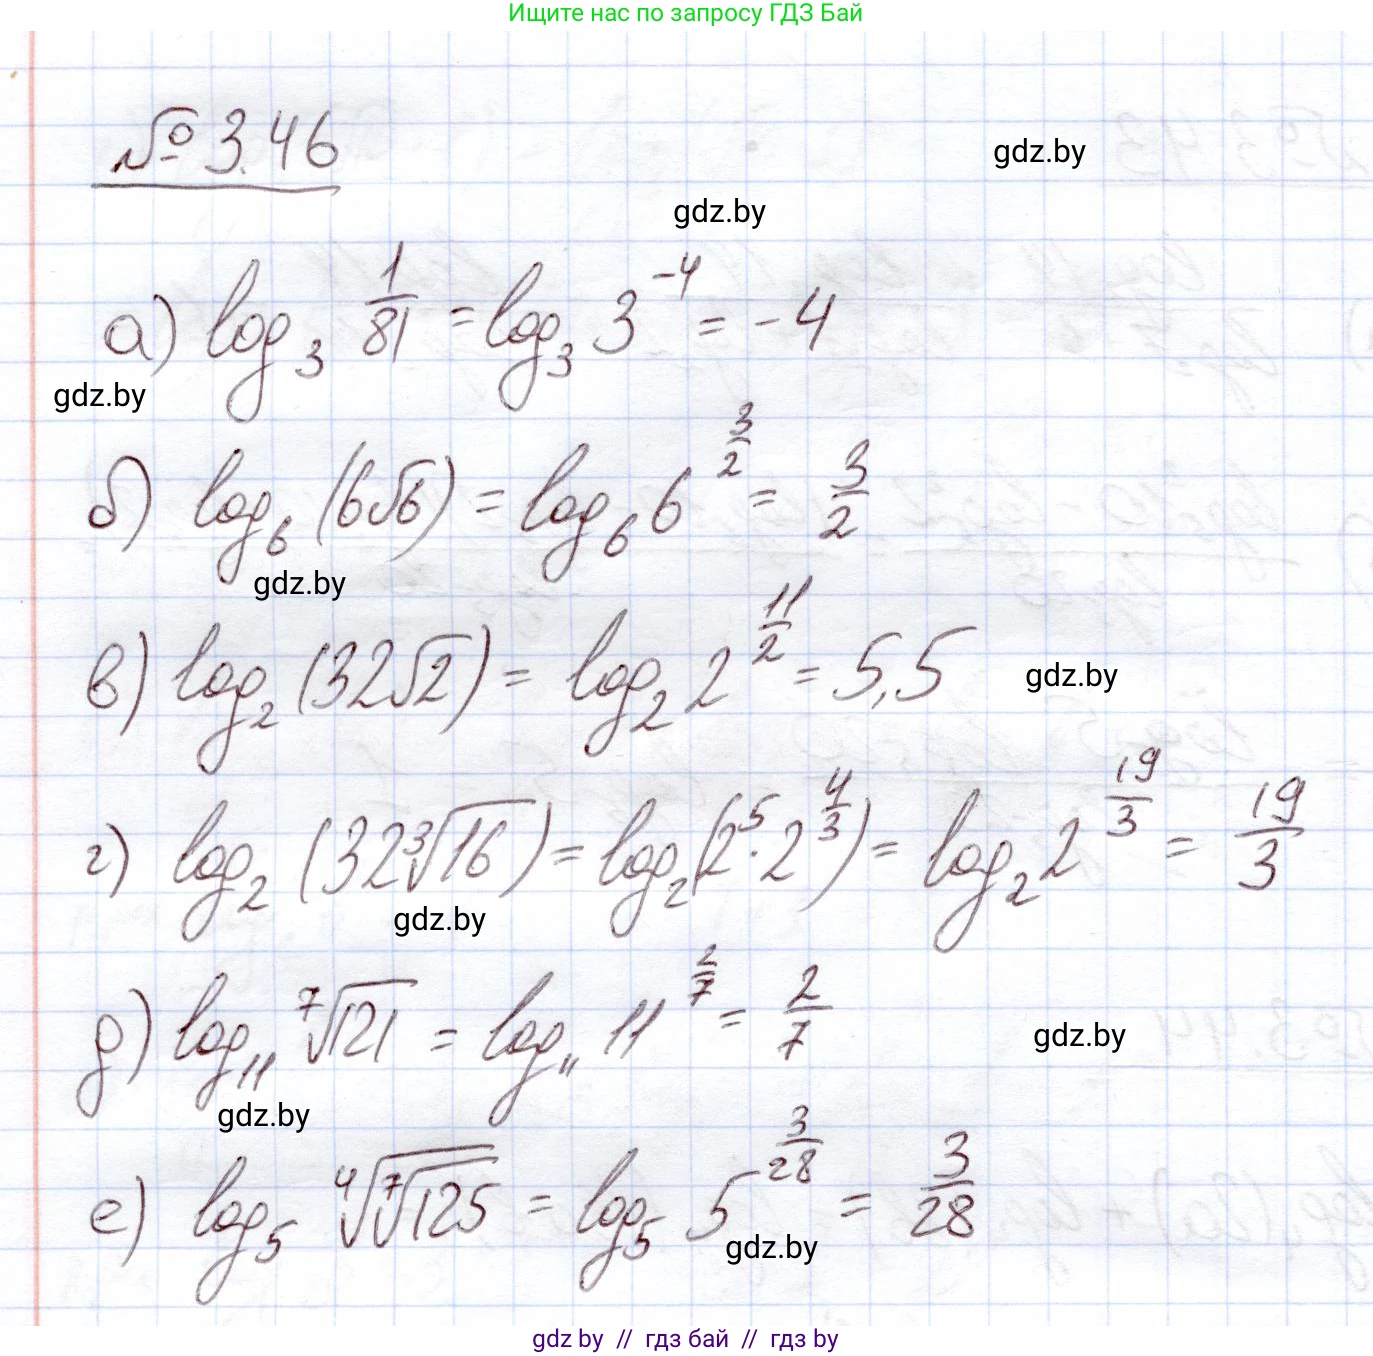 Ищите нас по запросу ГДЗ Бай
№ 3.46
gdz.by
gdz.by
а) log₃ 1/81 = log₃ 3^(-4) = -4
gdz.by
б) log₆ (6√6) = log₆ 6^(3/2) = 3/2
gdz.by
в) log₂ (32√2) = log₂ 2^(11/2) = 5,5
gdz.by
г) log₂ (32∛16) = log₂ (2⁵ · 2^(4/3)) = log₂ 2^(19/3) = 19/3
gdz.by
д) log₁₁ ⁷√121 = log₁₁ 11^(2/7) = 2/7
gdz.by
gdz.by
е) log₅ ⁴√(⁷√125) = log₅ 5^(3/28) = 3/28
gdz.by
gdz by // гдз бай // гдз by